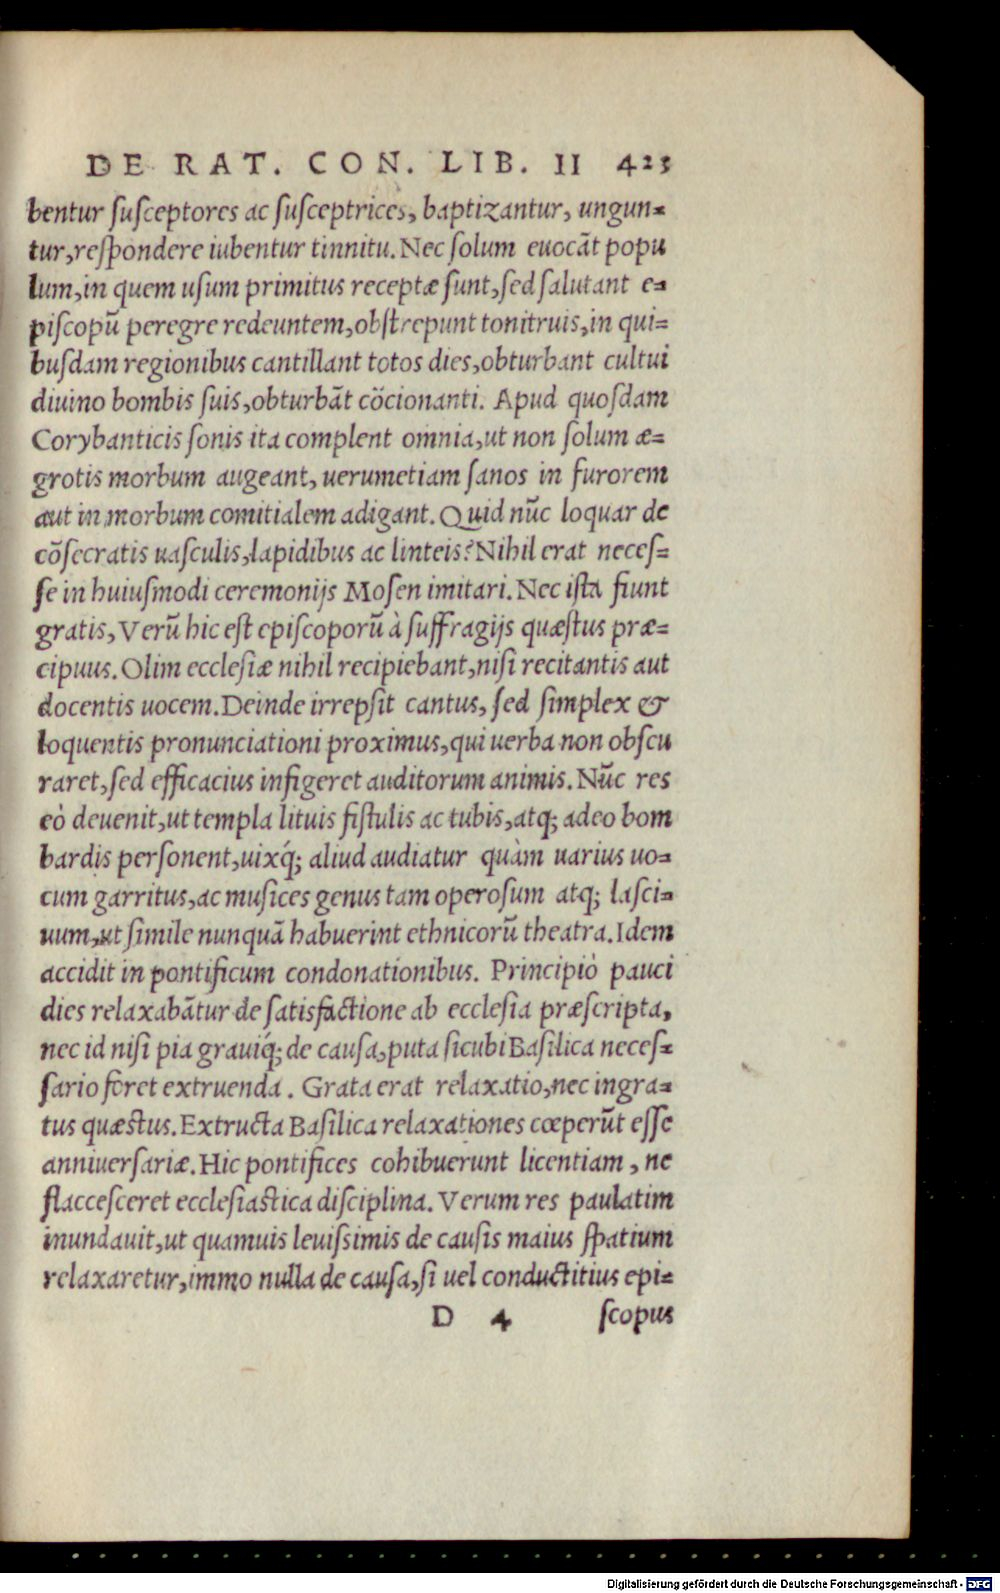 DE RAT. CON. LIB. II 423
bentur ſuſceptores ac ſuſceptrices, baptizantur, ungun-
tur, reſpondere iubentur tinnitu. Nec ſolum euocãt popu
lum, in quem uſum primitus receptæ ſunt, ſed ſalutant e-
piſcopũ peregre redeuntem, obſtrepunt tonitruis, in qui-
buſdam regionibus cantillant totos dies, obturbant cultui
diuino bombis ſuis, obturbãt cõcionanti. Apud quoſdam
Corybanticis ſonis ita complent omnia, ut non ſolum æ-
grotis morbum augeant, uerumetiam ſanos in furorem
aut in morbum comitialem adigant. Quid nũc loquar de
cõſecratis uaſculis, lapidibus ac linteis? Nihil erat neceſ-
ſe in huiuſmodi ceremonijs Moſen imitari. Nec iſta fiunt
gratis, Verũ hic eſt epiſcoporũ à ſuffragijs quæſtus præ-
cipuus. Olim eccleſiæ nihil recipiebant, niſi recitantis aut
docentis uocem. Deinde irrepſit cantus, ſed ſimplex &
loquentis pronunciationi proximus, qui uerba non obſcu
raret, ſed efficacius infigeret auditorum animis. Nũc res
eò deuenit, ut templa lituis fiſtulis ac tubis, atq; adeo bom
bardis perſonent, uixq́; aliud audiatur quàm uarius uo-
cum garritus, ac muſices genus tam operoſum atq; laſci-
uum, ut ſimile nunquã habuerint ethnicorũ theatra. Idem
accidit in pontificum condonationibus. Principiò pauci
dies relaxabãtur de ſatisfactione ab eccleſia præſcripta,
nec id niſi pia grauiq́; de cauſa, puta ſicubi Baſilica neceſ-
ſario foret extruenda. Grata erat relaxatio, nec ingra-
tus quæſtus. Extructa Baſilica relaxationes cœperũt eſſe
anniuerſariæ. Hic pontifices cohibuerunt licentiam, ne
flacceſceret eccleſiaſtica diſciplina. Verum res paulatim
inundauit, ut quamuis leuiſsimis de cauſis maius ſpatium
relaxaretur, immo nulla de cauſa, ſi uel conductitius epi-
D 4 ſcopus
Digitalisierung gefördert durch die Deutsche Forschungsgemeinschaft - DFG